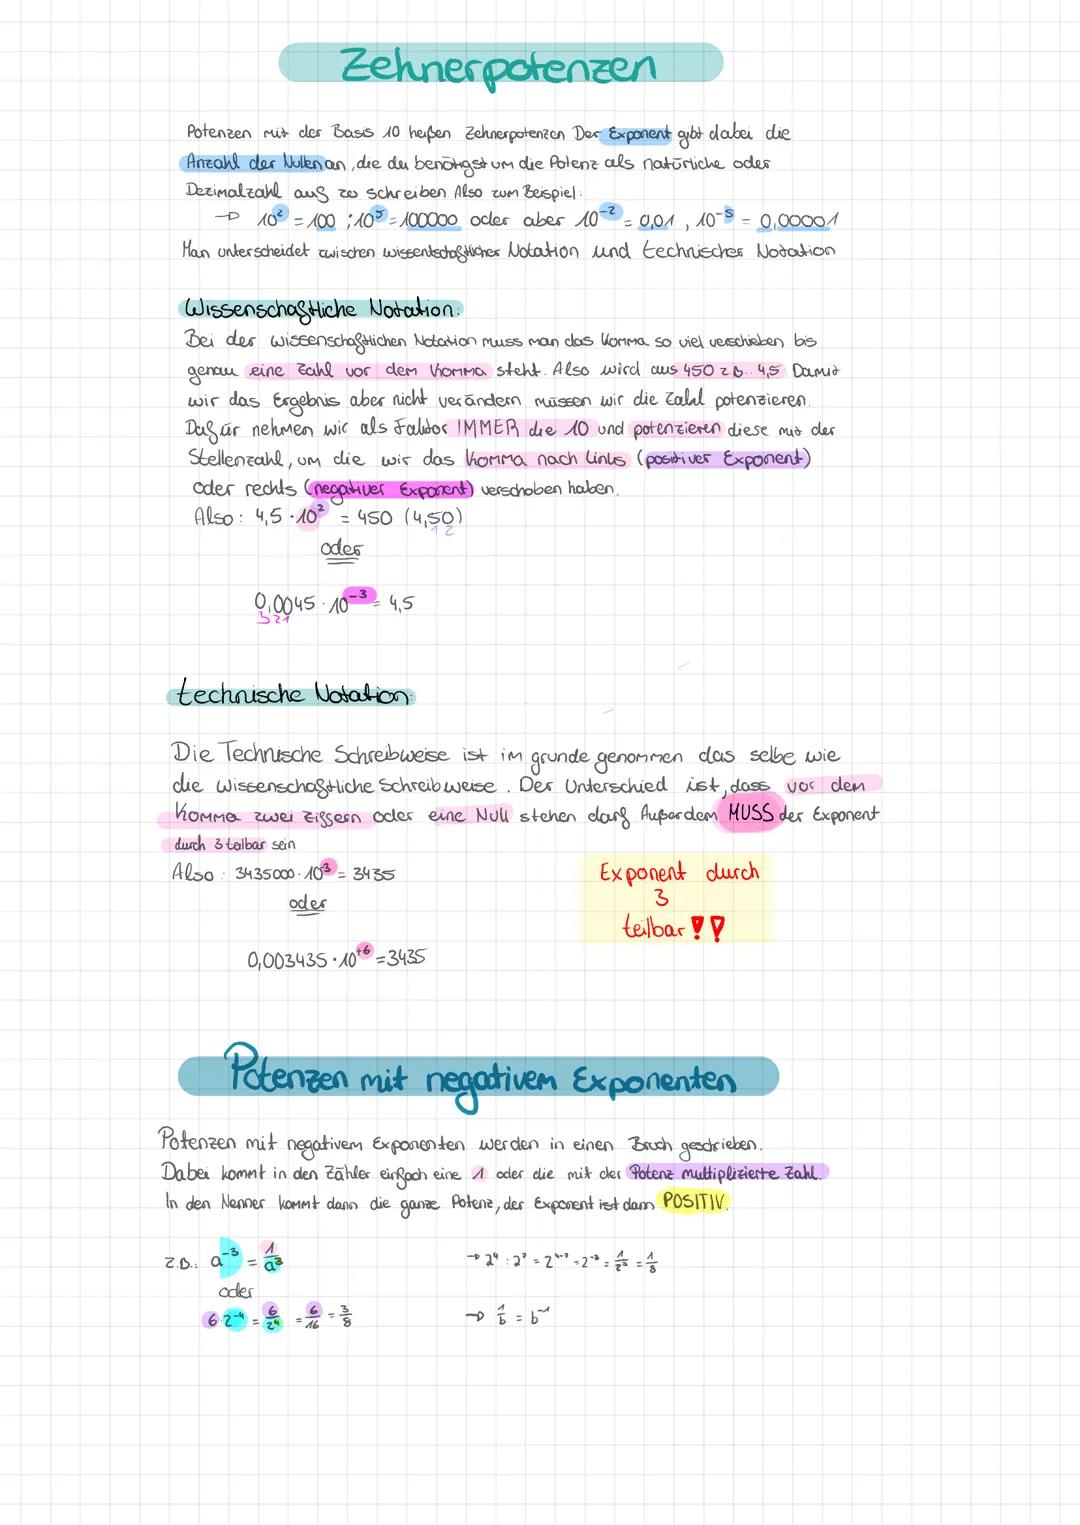 Zehnerpotenzen
Potenzen mit der Basis 10 heißen Zehnerpotenzen Der Exponent gibt dabei die
Anzahl der Nullen an, die du benötigst um die Potenz als natürliche oder
Dezimalzahl auf zu schreiben Also zum Beispiel:
→ 10² = 100 ; 10⁵ = 100000 oder aber 10⁻² = 0,01 , 10⁻⁵ = 0,00001
Man unterscheidet zwischen wissentschaftlicher Notation und technischer Notation
Wissenschaftliche Notation:
Bei der wissenschaftlichen Notation muss man das Komma so viel verschieben bis
genau eine Zahl vor dem Komma steht. Also wird aus 450 z.B. 4,5 Damit
wir das Ergebnis aber nicht verändern müssen wir die Zahl potenzieren.
Dafür nehmen wir als Faktor IMMER die 10 und potenzieren diese mit der
Stellenzahl, um die wir das Komma nach links (positiver Exponent)
oder rechts (negativer Exponent) verschoben haben.
Also: 4,5 · 10² = 450 (4,50)
1 2
oder
0,0045 · 10⁻³ = 4,5
3 2 1
technische Notation:
Die Technische Schreibweise ist im grunde genommen das selbe wie
die wissenschaftliche Schreibweise. Der Unterschied ist, dass vor dem
Komma zwei Ziffern oder eine Null stehen darf Außerdem MUSS der Exponent
durch 3 teilbar sein
Also: 3435000 · 10⁻³ = 3435
oder
0,003435 · 10⁺⁶ = 3435
Exponent durch
3
teilbar !!
Potenzen mit negativem Exponenten
Potenzen mit negativem Exponenten werden in einen Bruch geschrieben.
Dabei kommt in den Zähler einfach eine 1 oder die mit der Potenz multiplizierte Zahl.
In den Nenner kommt dann die ganze Potenz, der Exponent ist dann POSITIV.
z.B.: a⁻³ = 1/a³
oder
6·2⁻⁴ = 6/2⁴ = 6/16 = 3/8
→ 2⁴ : 2⁷ = 2⁴⁻⁷ = 2⁻³ = 1/2³ = 1/8
→ 1/b = b⁻¹